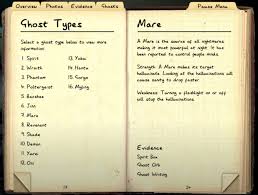 Overview Photos Evidence Ghosts
Pause Menu
Ghost Types
Select a ghost type below to view more
information
1 Spirit
2 Wraith
3 Phantom
4 Poltergeist
5 Banshee
6 Jinn
7 Mare
8 Revenant
9 Shade
10 Demon
11 Yurei
12 Oni
13 Yokai
14 Hantu
15 Goryo
16 Myling
Mare
A Mare is the source of all nightmares
making it most powerful at night. It has been
reported to control people minds.
Strength: A Mare makes its target
hallucinate. Looking at the hallucinations will
cause sanity to drop faster
Weakness: Turning a flashlight on or off
will stop the hallucinations.
Evidence
Spirit Box
Ghost Orb
Ghost Writing